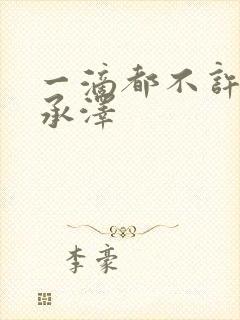 一滴都不許
承澤
李豪